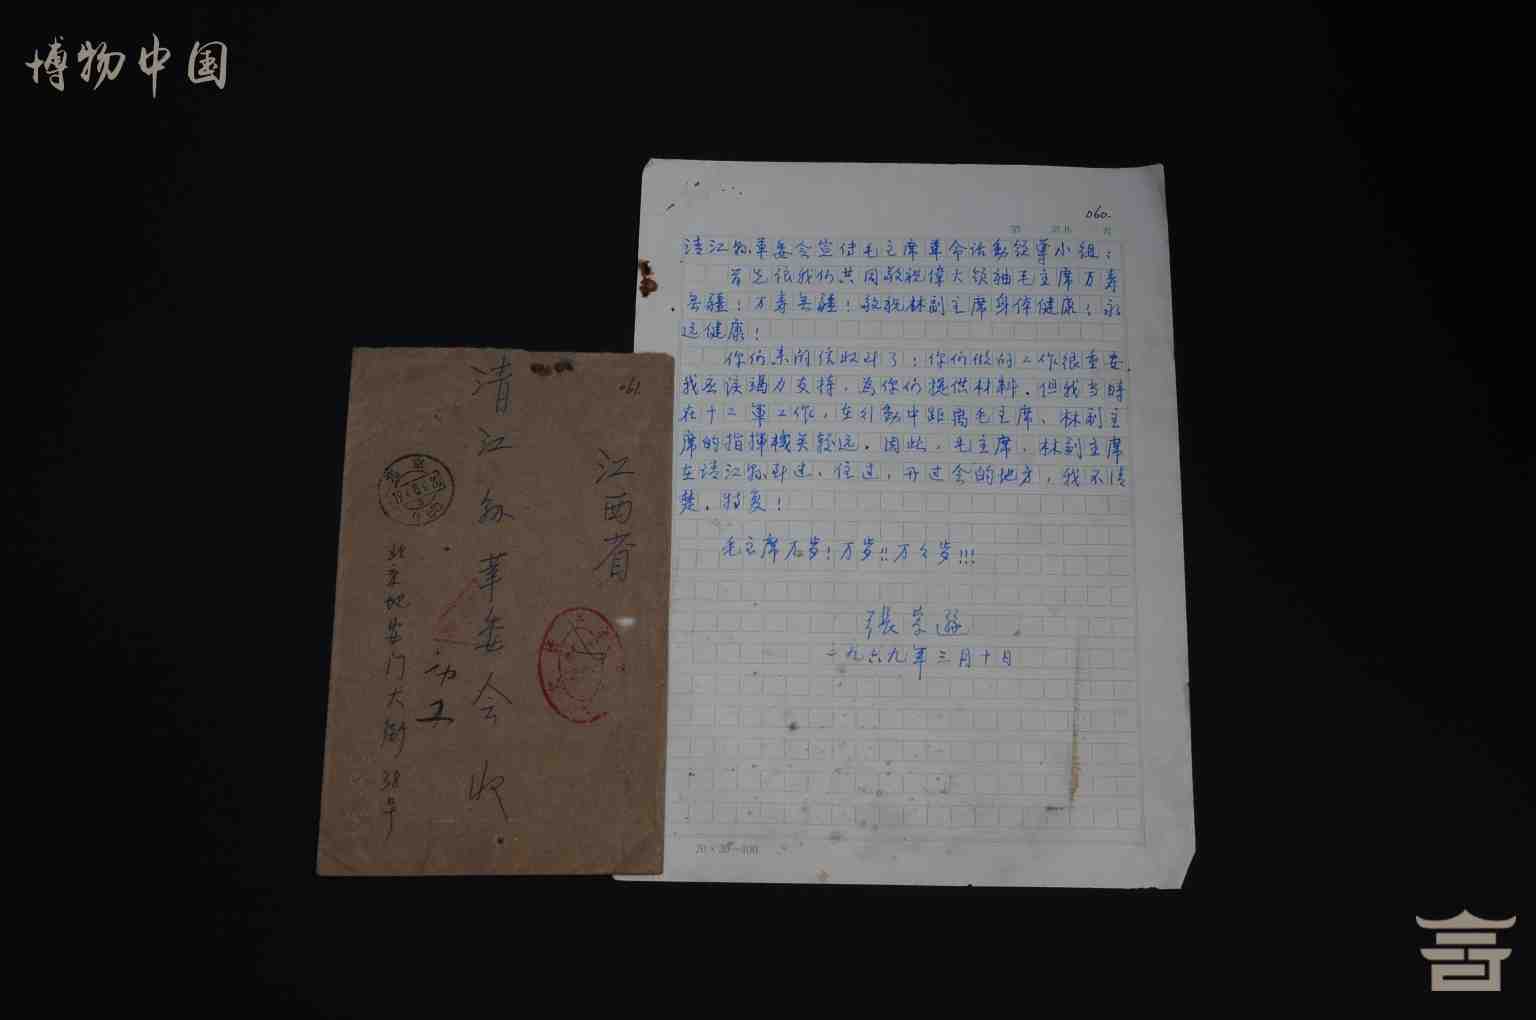 博物中国
060.
第 页共 页
清江縣革委会宣付毛主席革命活動领導小组：
首先让我们共同敬祝偉大领袖毛主席万寿
无疆！万寿无疆！敬祝林副主席身体健康！永
远健康！
你们来的信收到了！你们做的工作很重要，
我应该竭力支持，為你们提供材料。但我当時
在十二軍工作，在行動中距离毛主席、林副主
席的指揮機关较远。因此，毛主席、林副主席
在清江縣到过、住过、开过会的地方，我不清
楚。特复！
毛主席万岁！万岁!!万々岁!!!
張
一九六九年三月十日
20×20=400
061.
江西省
清江縣革委会 收
北京地安门大街38号